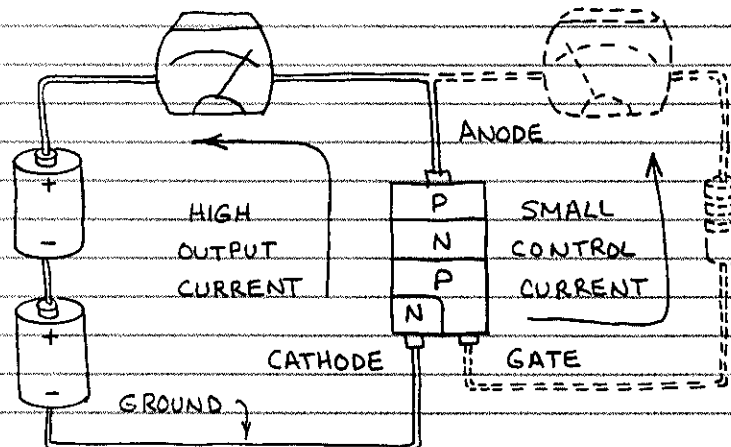 ANODE
+
-
+
-
HIGH
OUTPUT
CURRENT
P
N
P
N
SMALL
CONTROL
CURRENT
CATHODE
GATE
GROUND